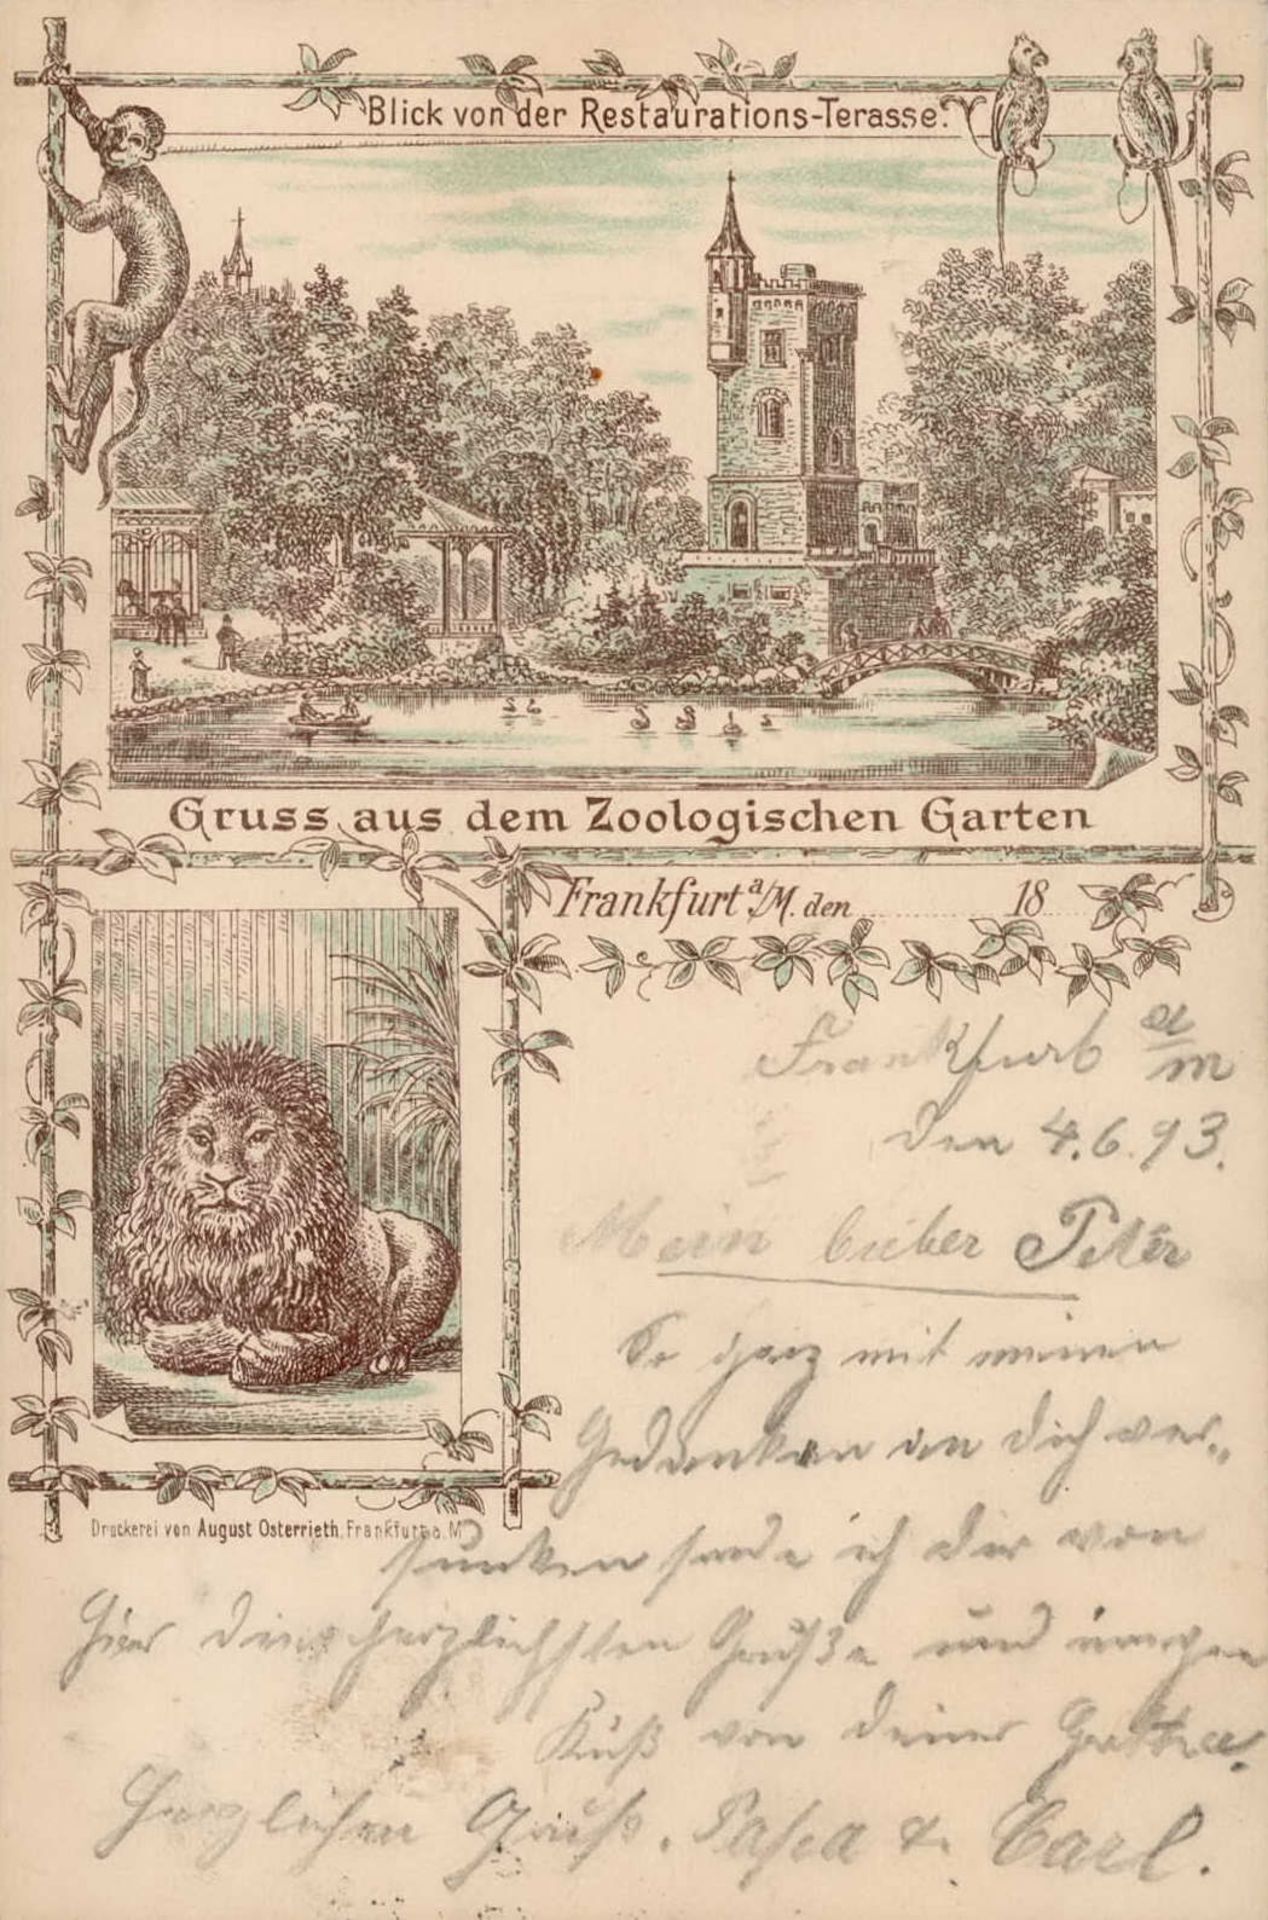 Blick von der Restaurations-Terasse.
Gruss aus dem Zoologischen Garten
Frankfurt a/M. den 18
Frankfurt a/m
den 4.6.93.
Mein lieber Peter
So ganz mit meinen
Gedanken an dich ver„
sunken sende ich dir von
hier die herzlichsten Grüße und innigen
Kuß von deiner
Druckerei von August Osterrieth, Frankfurt a. M.
Herzlichen Gruß. Papa & Carl.